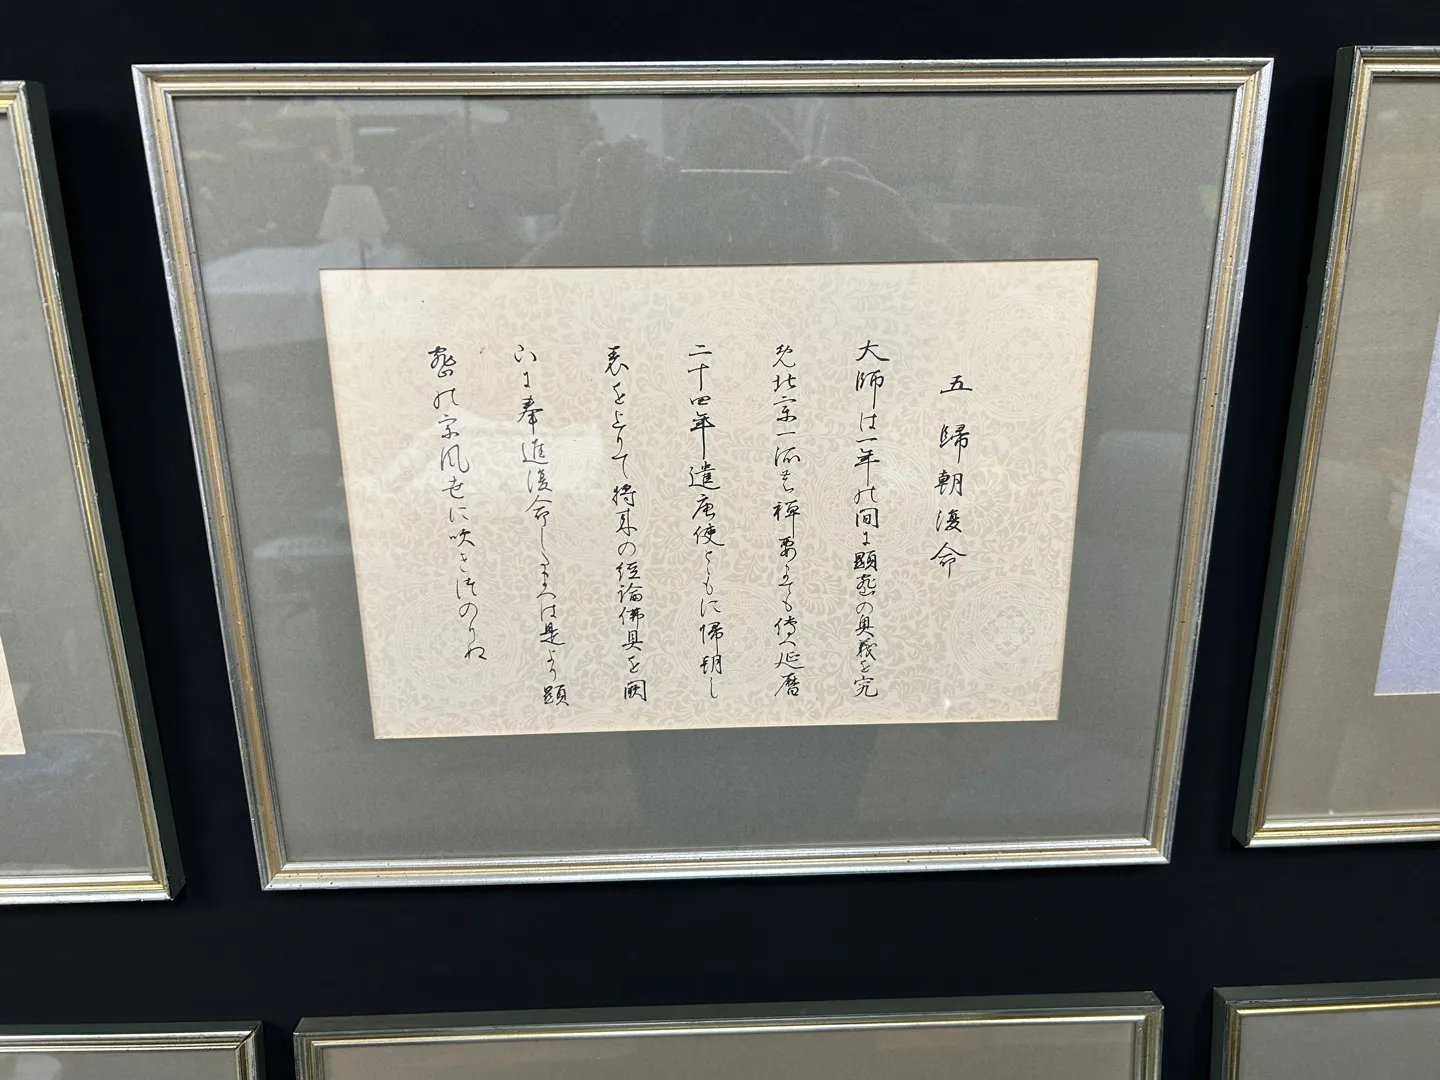 五 歸朝復命
大師は一年の間に顕密の奥義を究
め北宗一派の禅要をも傳へ延暦
二十四年遣唐使ともに帰朝し
表を上りて将来の経論佛具を闕
下に奉進復命したまへは是より顕
密の宗風世に吹きつのりぬ